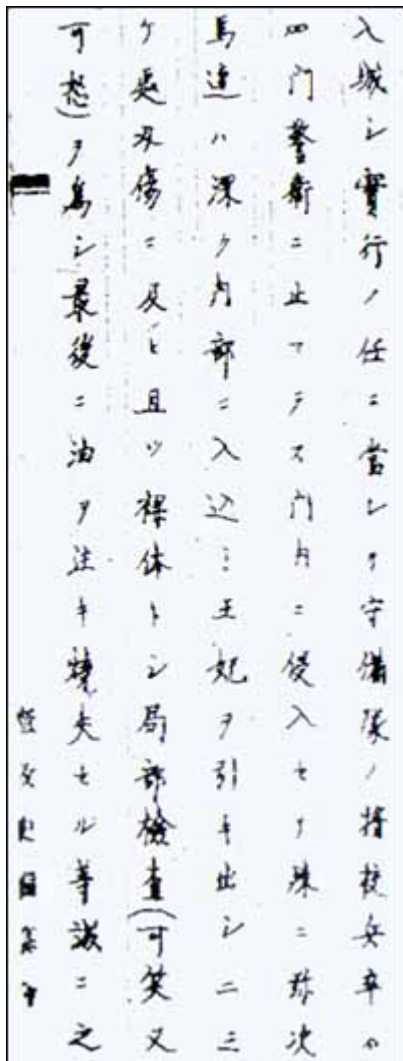 入城シ實行ノ任ニ當レリ守備隊ノ将校兵卒ハ
四門警衛ニ止マラス門内ニ侵入セリ殊ニ弥次
馬連ハ深ク内部ニ入込ミ王妃ヲ引キ出シ二三
ケ處刃傷ニ及ヒ且ツ裸体トシ局部検査(可笑又
可怒)ヲ為シ最後ニ油ヲ注キ燒失セル等誠ニ之